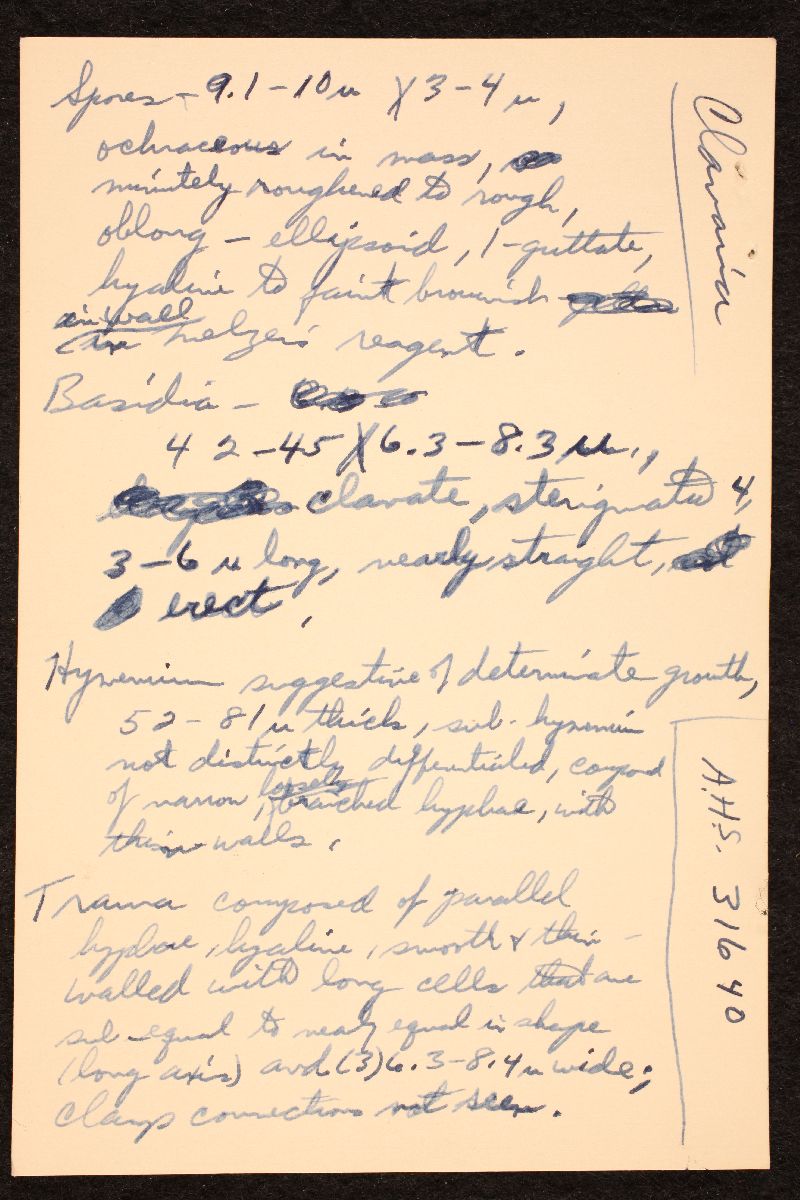 Clavaria
Spores - 9.1-10 u X 3-4 u,
ochraceous in mass,
minutely roughened to rough,
oblong - ellipsoid, 1-guttate,
hyaline to faint brownish
in wall
in Melzer's reagent.
Basidia -
42-45 X 6.3-8.3 u.,
clavate, sterigmata 4,
3-6 u long, nearly straight,
erect,
Hymenium suggestive of determinate growth,
52-81 u thick, sub-hymenium
not distinctly differentiated, composed
loosely
of narrow, branched hyphae, with
thin walls.
Trama composed of parallel
hyphae, hyaline, smooth & thin-
walled with long cells that are
sub-equal to nearly equal in shape
(long axis) and (3) 6.3-8.4 u wide;
clamp connections not seen.
A.H.S. 31640